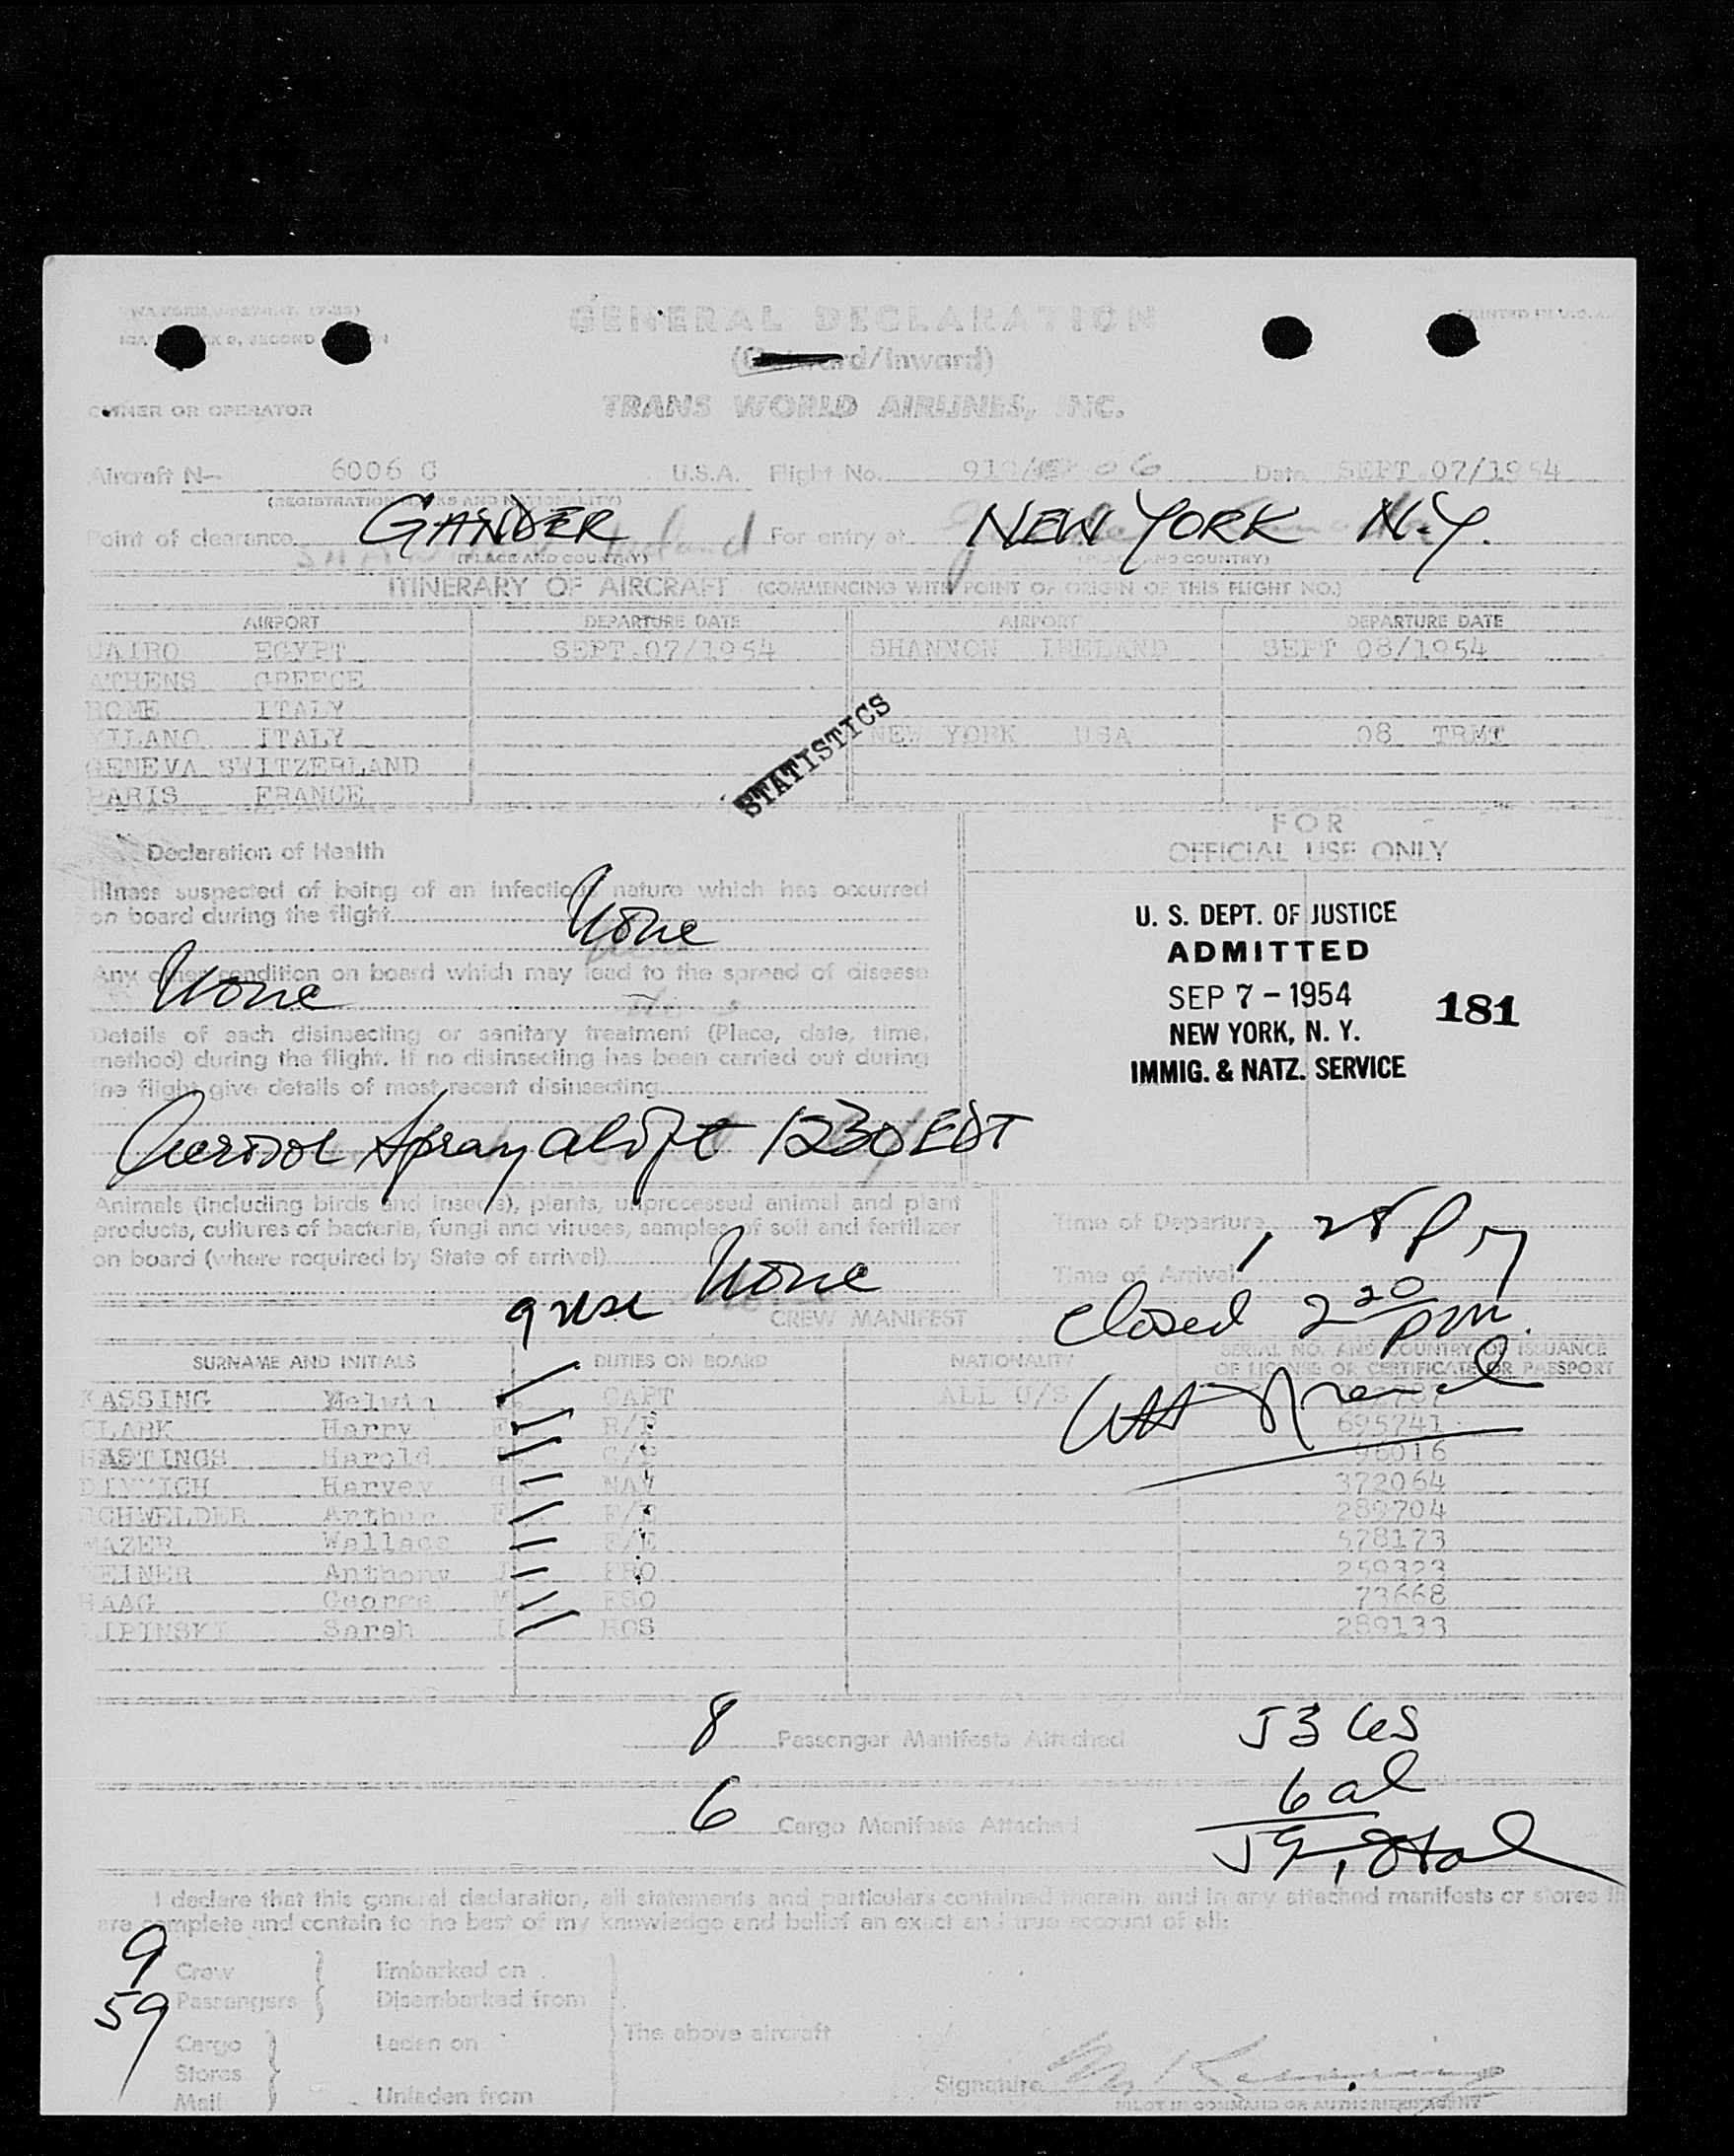 GENERAL DECLARATION
(Outward/Inward)
OWNER OR OPERATOR TRANS WORLD AIRLINES, INC.
PRINTED IN U.S.A.
Aircraft N— 6006 C U.S.A. Flight No. 06 Date SEPT.07/1954
(REGISTRATION MARKS AND NATIONALITY)
Point of clearance GANDER For entry at NEW YORK N.Y.
(PLACE AND COUNTRY) (PLACE AND COUNTRY)
ITINERARY OF AIRCRAFT (COMMENCING WITH POINT OF ORIGIN OF THIS FLIGHT NO.)
AIRPORT DEPARTURE DATE AIRPORT DEPARTURE DATE
CAIRO EGYPT SEPT.07/1954 SHANNON IRELAND SEPT 08/1954
ATHENS GREECE
ROME ITALY
MILANO ITALY NEW YORK USA 08 TRMT
GENEVA SWITZERLAND
PARIS FRANCE
STATISTICS
FOR
OFFICIAL USE ONLY
Declaration of Health
Illness suspected of being of an infectious nature which has occurred
on board during the flight None
Any other condition on board which may lead to the spread of disease
None
Details of each disinsecting or sanitary treatment (Place, date, time,
method) during the flight. If no disinsecting has been carried out during
the flight give details of most recent disinsecting
Aerosol Spray aloft 1230 EDT
U. S. DEPT. OF JUSTICE
ADMITTED
SEP 7 - 1954
181
NEW YORK, N. Y.
IMMIG. & NATZ. SERVICE
Animals (including birds and insects), plants, unprocessed animal and plant
products, cultures of bacteria, fungi and viruses, samples of soil and fertilizer
on board (where required by State of arrival)
None
Time of Departure
Time of Arrival 1 28 Pm
closed 2 20 pm.
9 usc
CREW MANIFEST
SURNAME AND INITIALS DUTIES ON BOARD NATIONALITY SERIAL NO. AND COUNTRY OF ISSUANCE
OF LICENSE OR CERTIFICATE OR PASSPORT
KASSING Melvin CAPT ALL U/S
CLARK Harry 695741
HASTINGS Harold 96016
Harvey NAV 372064
SCHWELDER Arthur F/E 289704
MAZER Wallace F/E 578173
Anthony 259323
HAAG George M FSO 73668
LIPINSKI Sarah HOS 289133
8 Passenger Manifests Attached
53 US
6 al
59 total
6 Cargo Manifests Attached
I declare that this general declaration, all statements and particulars contained therein, and in any attached manifests or stores
are complete and contain to the best of my knowledge and belief an exact and true account of all:
9 Crew Embarked on
59 Passengers Disembarked from
The above aircraft
Cargo Laden on
Stores
Mail Unladen from
Signature
PILOT IN COMMAND OR AUTHORIZED AGENT